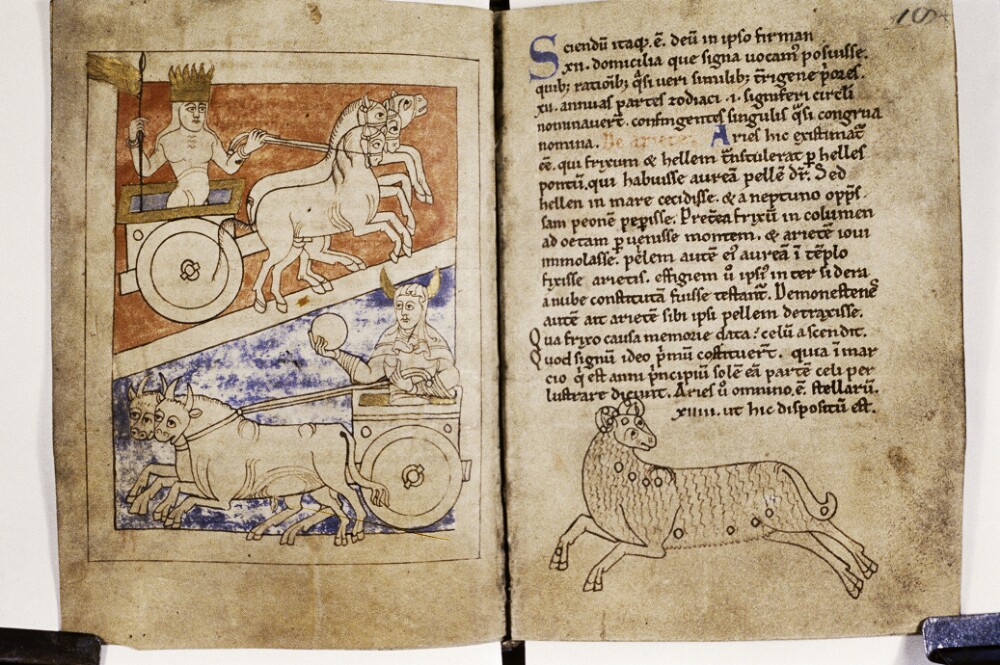 Sciendũ itaq;. ē. deũ in ipso firman
xii. domicilia que signa uocam᷒ posuisse.
quib; rationib; q̃si ueri similib; t̃rigene p̃ores.
xii. annuas partes zodiaci .i. signiferi circli
nominauert̃. contingentes singulis q̃si congrua
nomina. De ariete Aries hic existimat̃
ēē. qui frixum & hellem t̃nstulerat p̱ helles
pontũ. qui habuisse aureã pellē dr̃. Sed
hellen in mare cecidisse. & a neptuno opp̃s
sam peonē pep̱isse. Pret̃ea frixũ in columen
ad oetam p̱uenisse montem. & arietē ioui
immolasse. pellem autē ei᷒ aureã ĩ tēplo
fixisse arietis. effigiem ũ ipsi᷒ inter sidera
a nube constitutã fuisse testant̃. Demonestene᷒
autē ait arietē sibi ipsi pellem detraxisse.
Qua frixo causa memorie data: celũ ascendit.
Quod signũ ideo p̃mũ cõstituert̃. quia ĩ mar
cio q̃ est anni p̃ncipiũ solē eã partē celi per
lustrare dicunt. Aries ũ omnino. ē. stellarũ.
xiiii. ut hic dispositũ est.